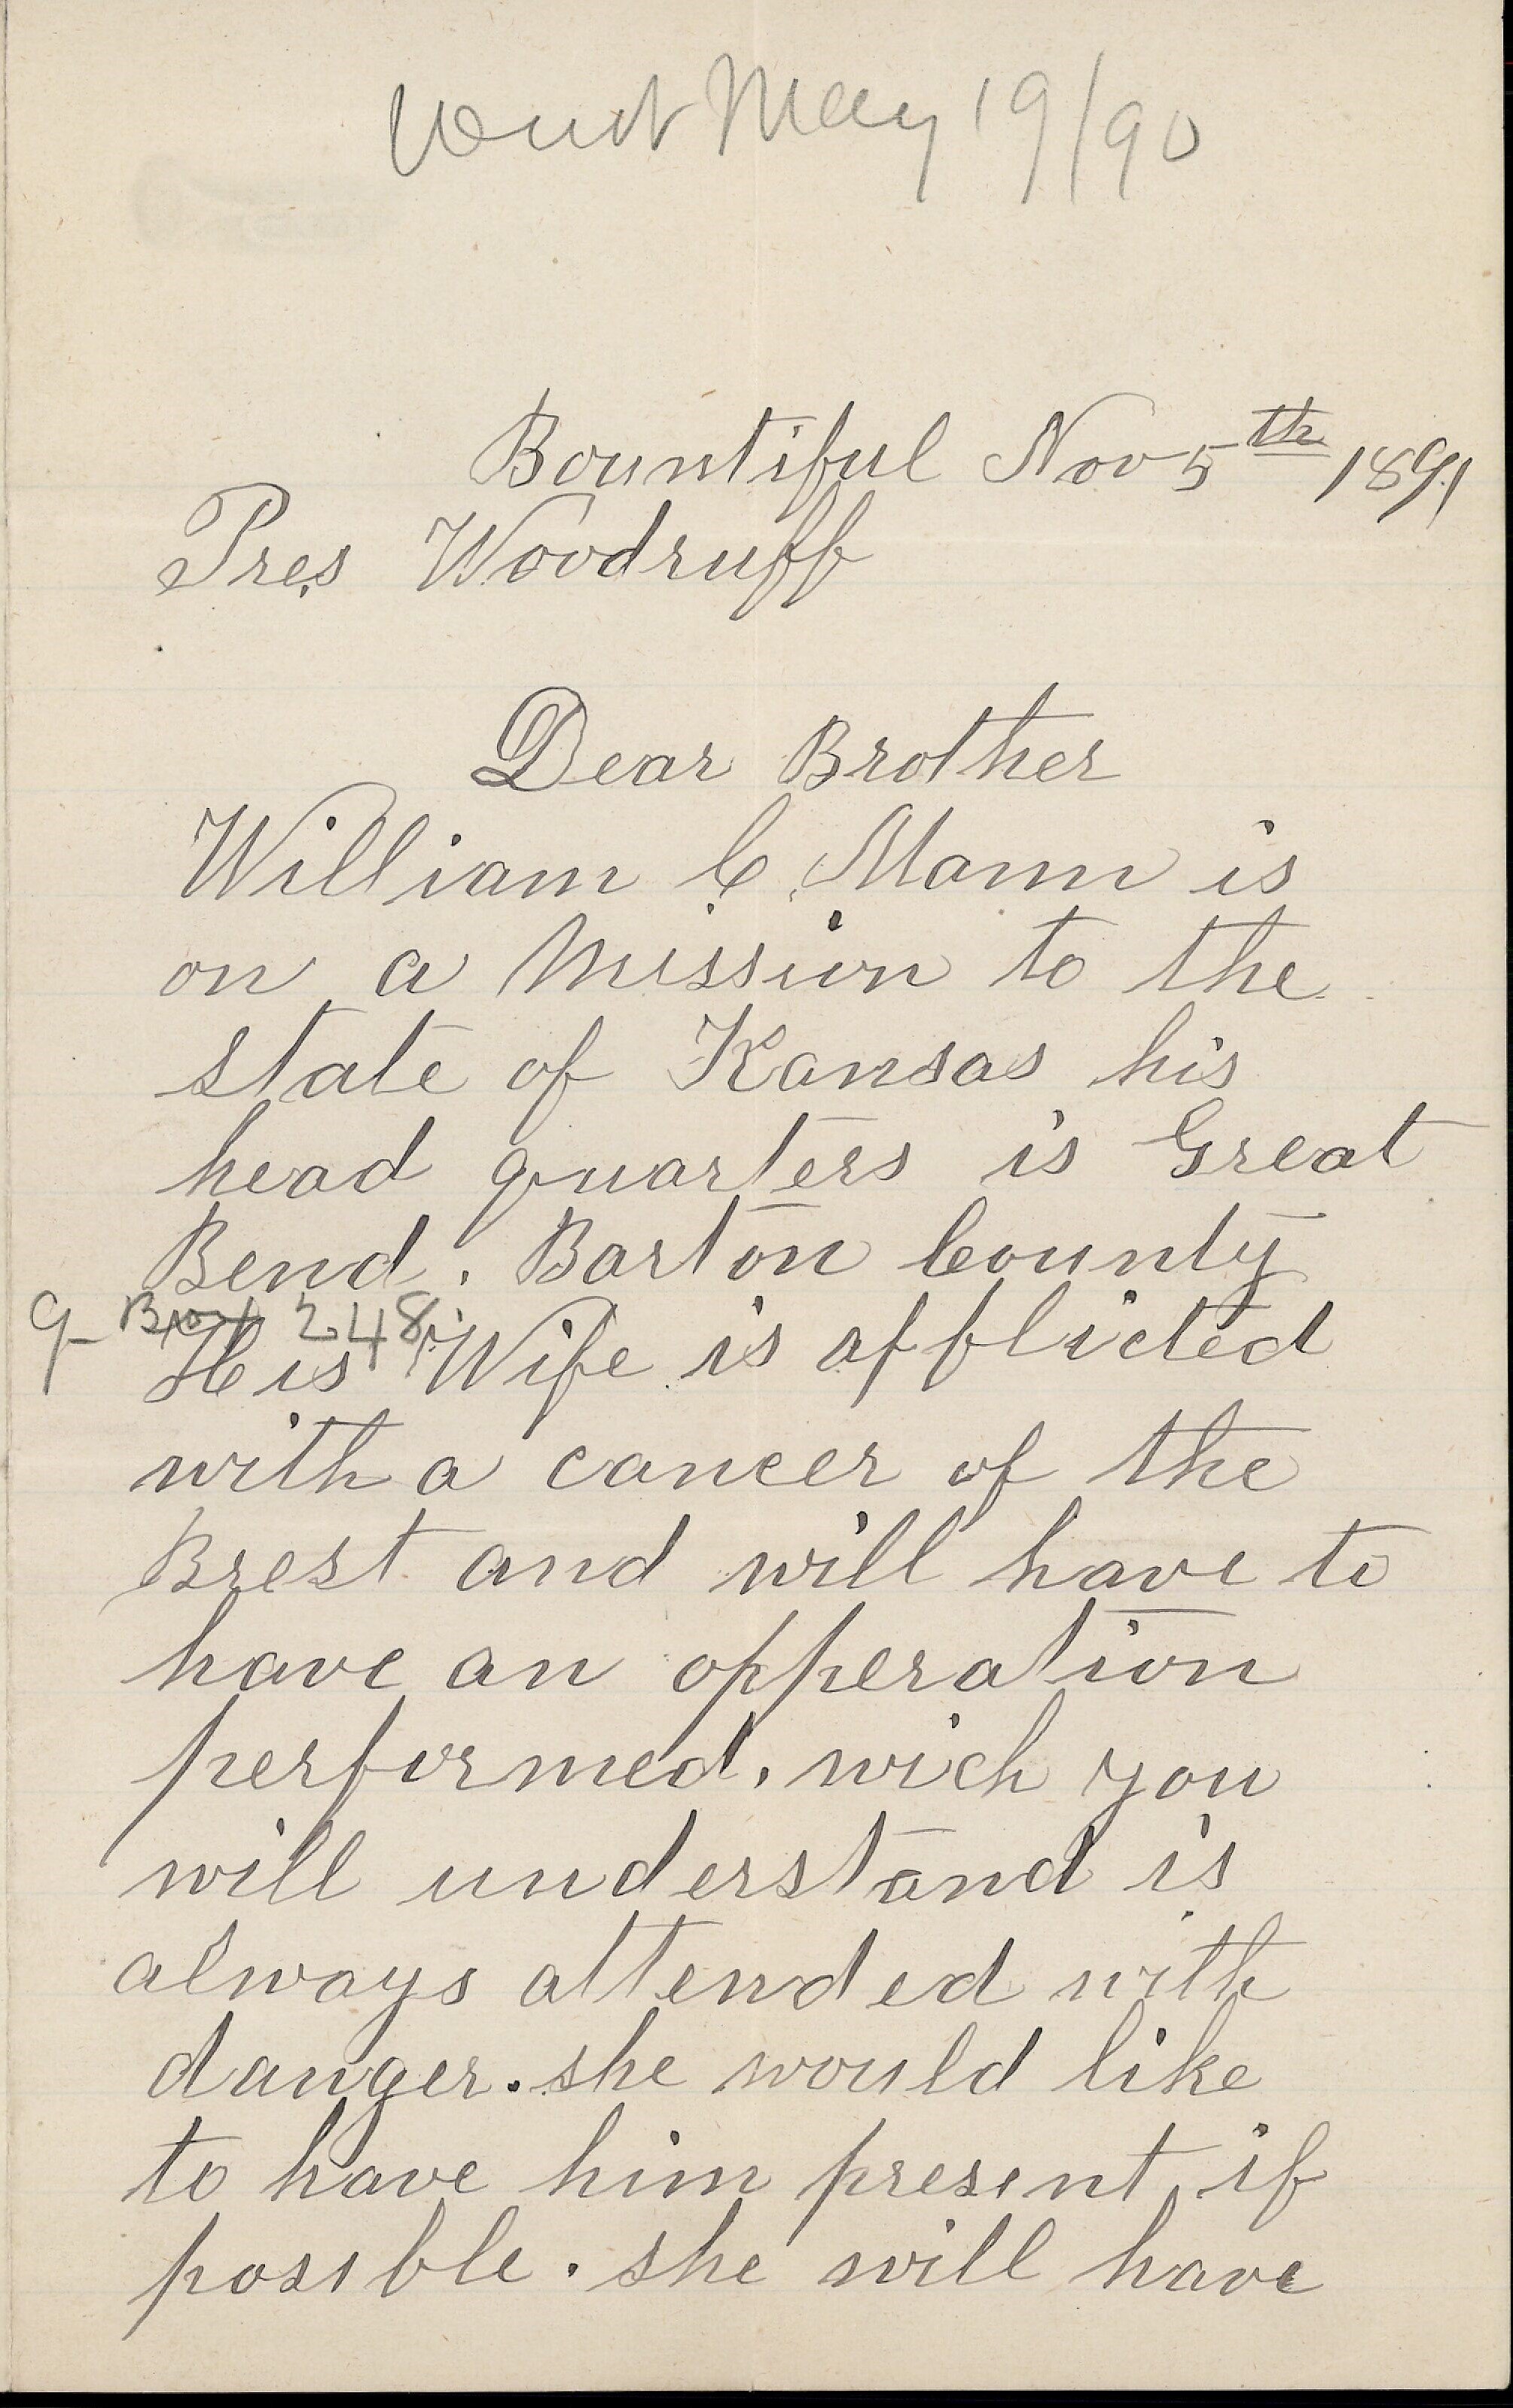 Went May 19/90
Bountiful Nov 5th 1891
Pres Woodruff
Dear Brother
William C. Mann is
on a Mission to the
state of Kansas his
head quarters is Great
Bend. Barton County
Box 248
His Wife is afflicted
with a cancer of the
Brest and will have to
have an opperation
performed. wich you
will understand is
always attended with
danger. she would like
to have him present if
possible. she will have